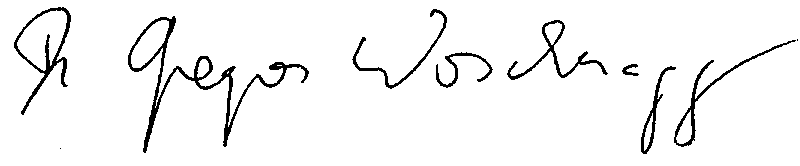 Dr Gregor Woschnagg